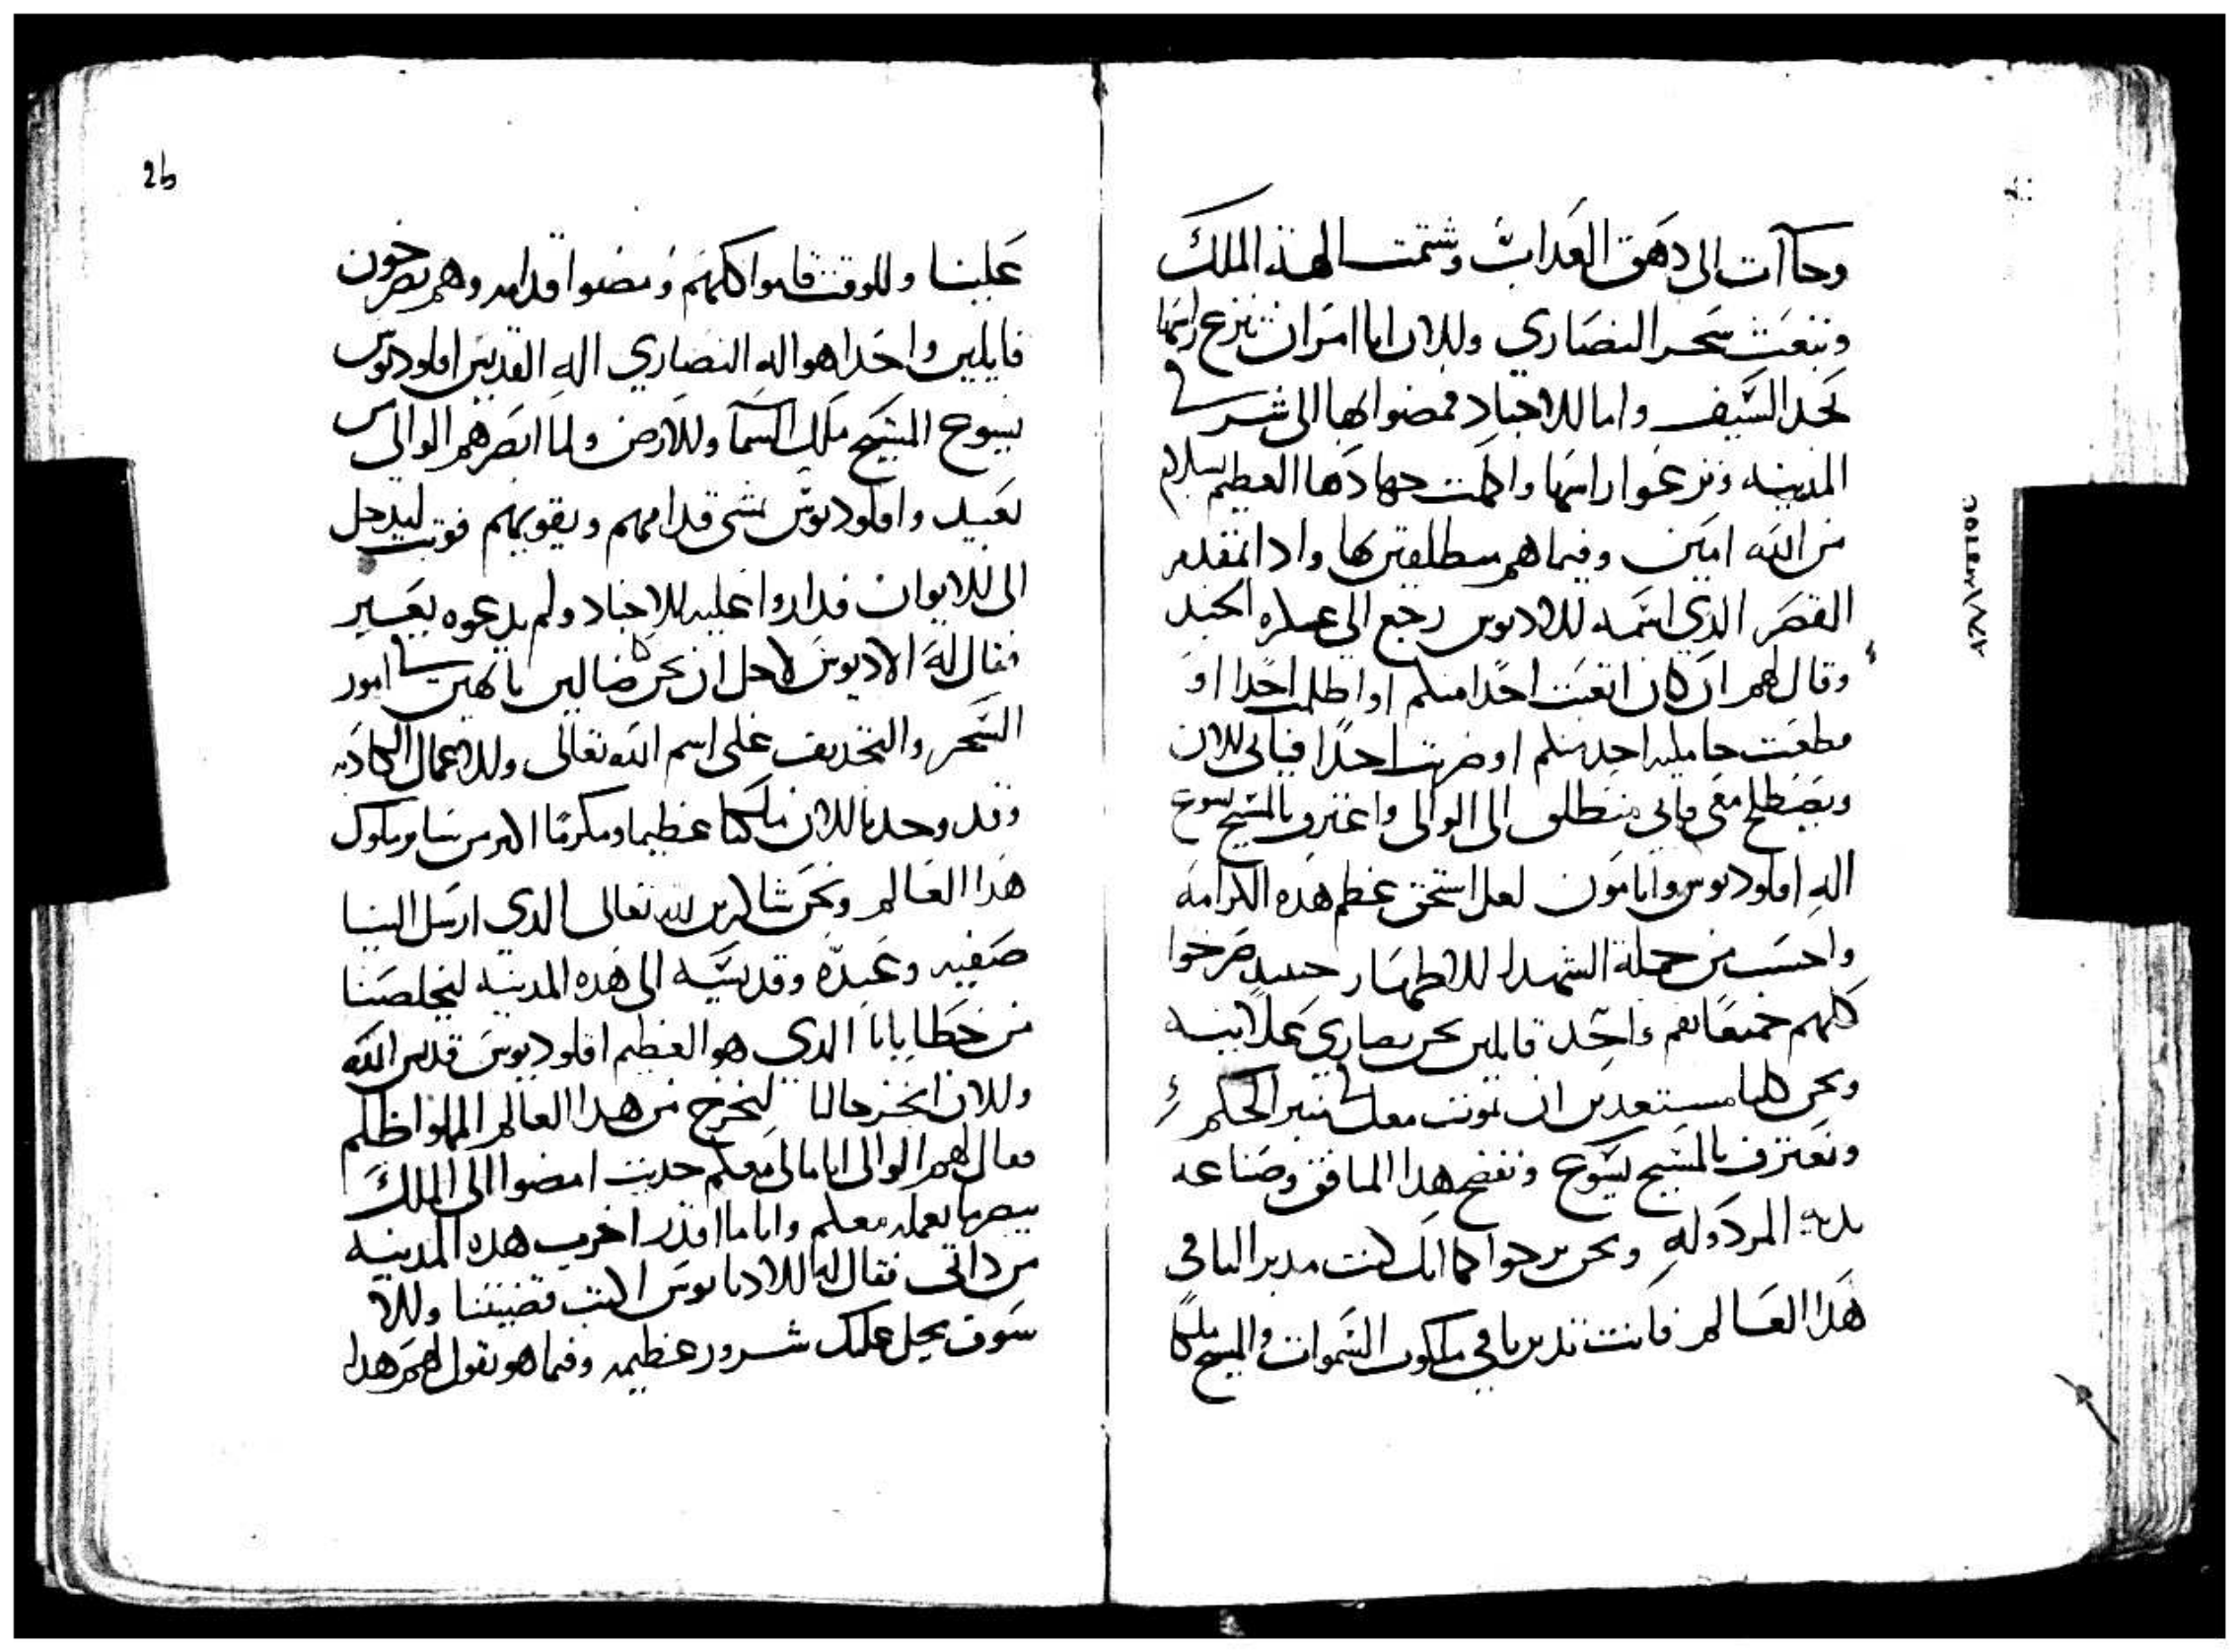 وجاآت الى دهق العداب وشتمت الهة الملك
وتبعت سحر النصاري وللان انا امر ان تنزع راسها
بحد السيف واما للاجناد فمضوا بها الى شرقي
المدينه ونزعوا راسها واكملت جهادها العظيم بسلام
من الله امين وفيما هم منطلقين بها واذا بمقدم
القصر الدي اسمه للاديوس رجع الى عسكره الجند
وقال لهم ان كان اتعبت احدا منكم او اظلمت احدا او
قطعت جامكيه احد منكم او ضربت احدا فياتي للان
ويصطلح معي فاني منطلق الى الوالي واعترف بالمسيح يسوع
اله اقلوديوس وانا مون لعل استحق عظم هده الكرامه
واحسب من جملة الشهدا للاطهار حينيد صرخوا
كلهم جميعا بفم واحد قايلين نحن نصاري علانيه
ونحن كلنا مستعدين ان نموت معك في منبر الحكم
ونعترف بالمسيح يسوع ونفضح هدا المنافق وصناعه
يديه المردوله ونحن نرجوا كما انك كنت مدبر لنا في
هدا العالم فانت تدبرنا في ملكوت السموات والمسيح ملكا
26
علينا وللوقت قاموا كلهم ومضوا قدامه وهم يصرخون
قايلين واحدا هو اله النصاري اله القديس اقلوديوس
يسوع المسيح ملك السما وللارض ولما ابصرهم الوالي من
بعيد واقلوديوس يمشي قدامهم ويقويهم فوتب ليدخل
الى للايوان فداروا عليه للاجناد ولم يدعوه يعبر
فقال له الاديوس لاجل ان نحن ضالين تايهين في امور
السحر والتجديف على اسم الله تعالى وللاعمال الكادبه
وقد وجدنا للان ملكا عظيما ومكرما اكتر من ساير ملوك
هدا العالم ونحن شاكرين لله تعالى الدي ارسل الينا
صفيه وعبده وقديسه الى هده المدينه ليخلصنا
من خطايانا الدي هو العظيم اقلوديوس قديس الله
وللان انجز حالنا لنخرج من هدا العالم المملوا ظلم
فقال لهم الوالي انا ما لي معكم حديت امضوا الى الملك
يبصر ما يعمله معكم وانا ما اقدر اخرب هده المدينه
من داتي فقال له للاديانوس اكتب قضيتنا وللا
سوف يحل عليك شرور عظيمه وفيما هو يقول لهم هدا